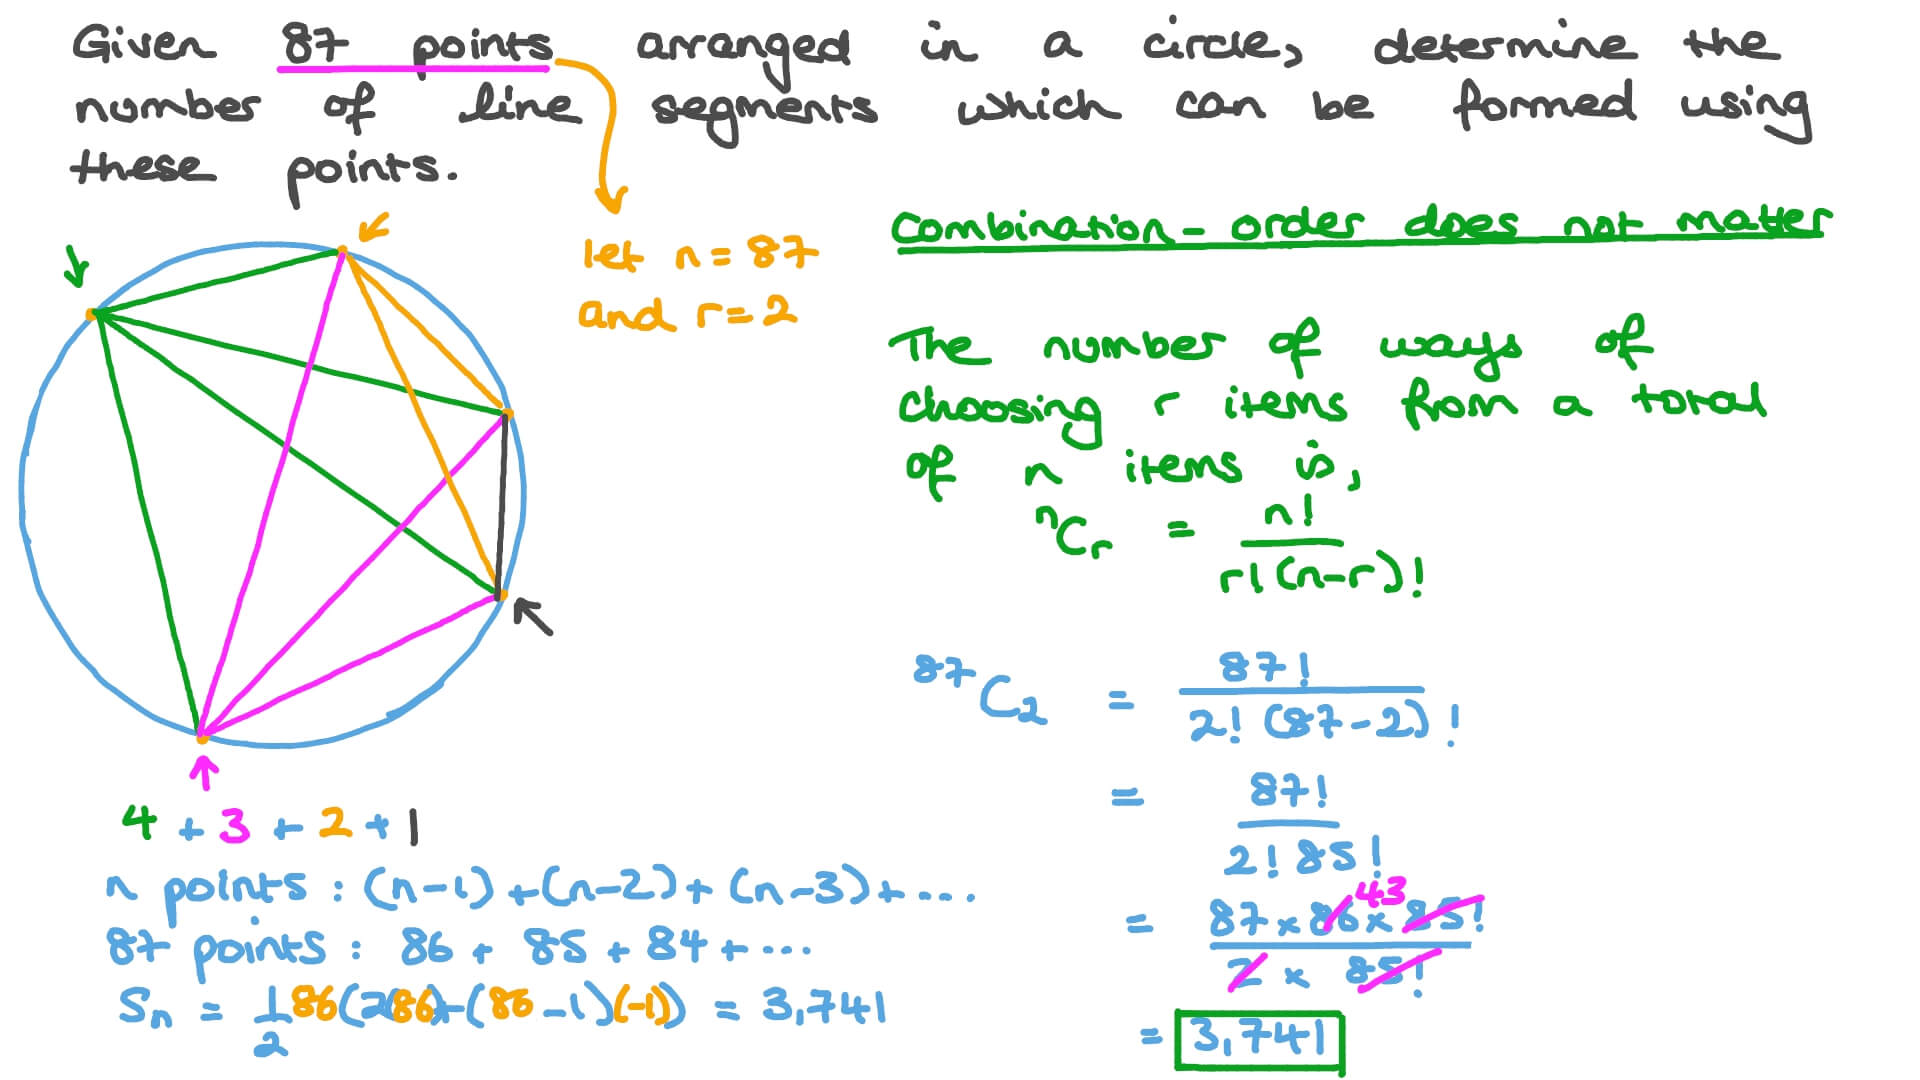 Given 87 points arranged in a circle, determine the
number of line segments which can be formed using
these points.
let n = 87
and r = 2
Combination - order does not matter
The number of ways of
choosing r items from a total
of n items is,
ⁿCᵣ = n! / r!(n-r)!
⁸⁷C₂ = 87! / 2! (87-2)!
= 87! / 2! 85!
= 87 x 86 x 85! / 2 x 85!
43
= 3,741
4 + 3 + 2 + 1
n points : (n-1) + (n-2) + (n-3) + ....
87 points : 86 + 85 + 84 + ....
Sn = 1/2 86(2(86)+(86-1)(-1)) = 3,741